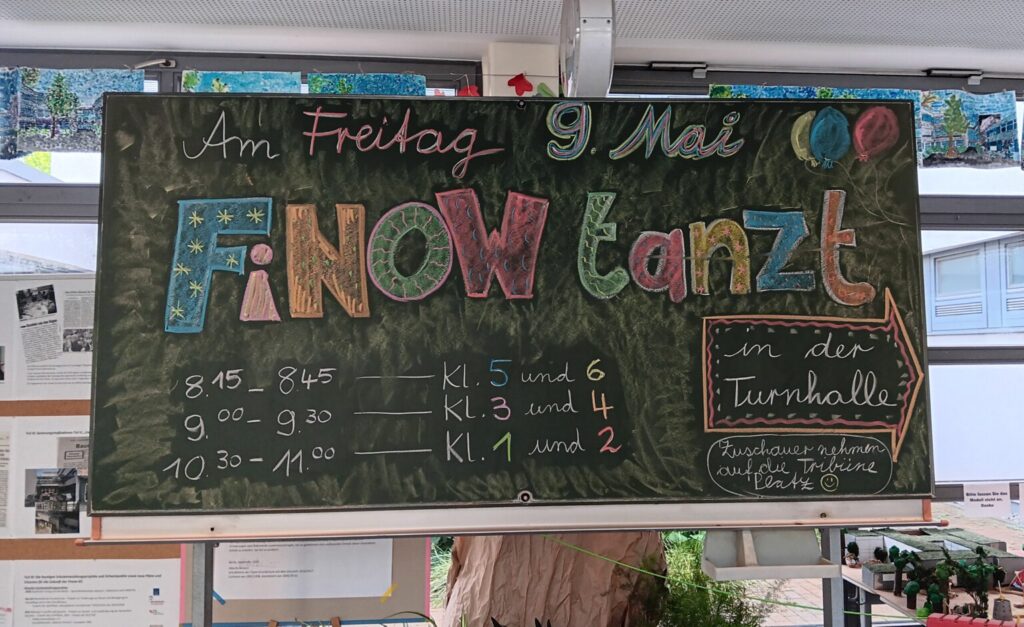 Am Freitag 9. Mai
FiNOW tanzt
8.15 - 8.45 — Kl. 5 und 6
9.00 - 9.30 — Kl. 3 und 4
10.30 - 11.00 — Kl. 1 und 2
in der
Turnhalle
Zuschauer nehmen
auf die Tribüne
Platz ☺
Bitte lassen Sie das
Modell nicht an.
Danke